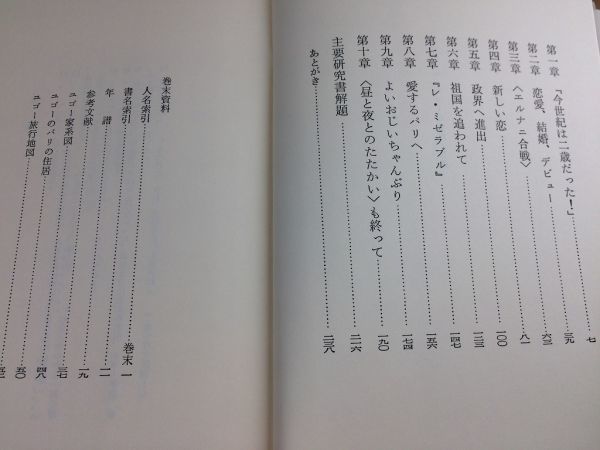 第一章 『今世紀は二歳だった！』 七
第二章 恋愛、結婚、デビュー 三九
第三章 〈エルナニ合戦〉 六三
第四章 新しい恋 八一
第五章 政界へ進出 一〇〇
第六章 祖国を追われて 一二三
第七章 『レ・ミゼラブル』 一四七
第八章 愛するパリへ 一五六
第九章 よいおじいちゃんぶり 一七四
第十章 〈昼と夜とのたたかい〉も終って 一九〇
主要研究書解題 二一六
あとがき 二三八
巻末資料
人名索引
書名索引 巻末 一
年譜 一一
参考文献 一九
ユゴー家系図 三七
ユゴーのパリの住居 四八
ユゴー旅行地図 五〇